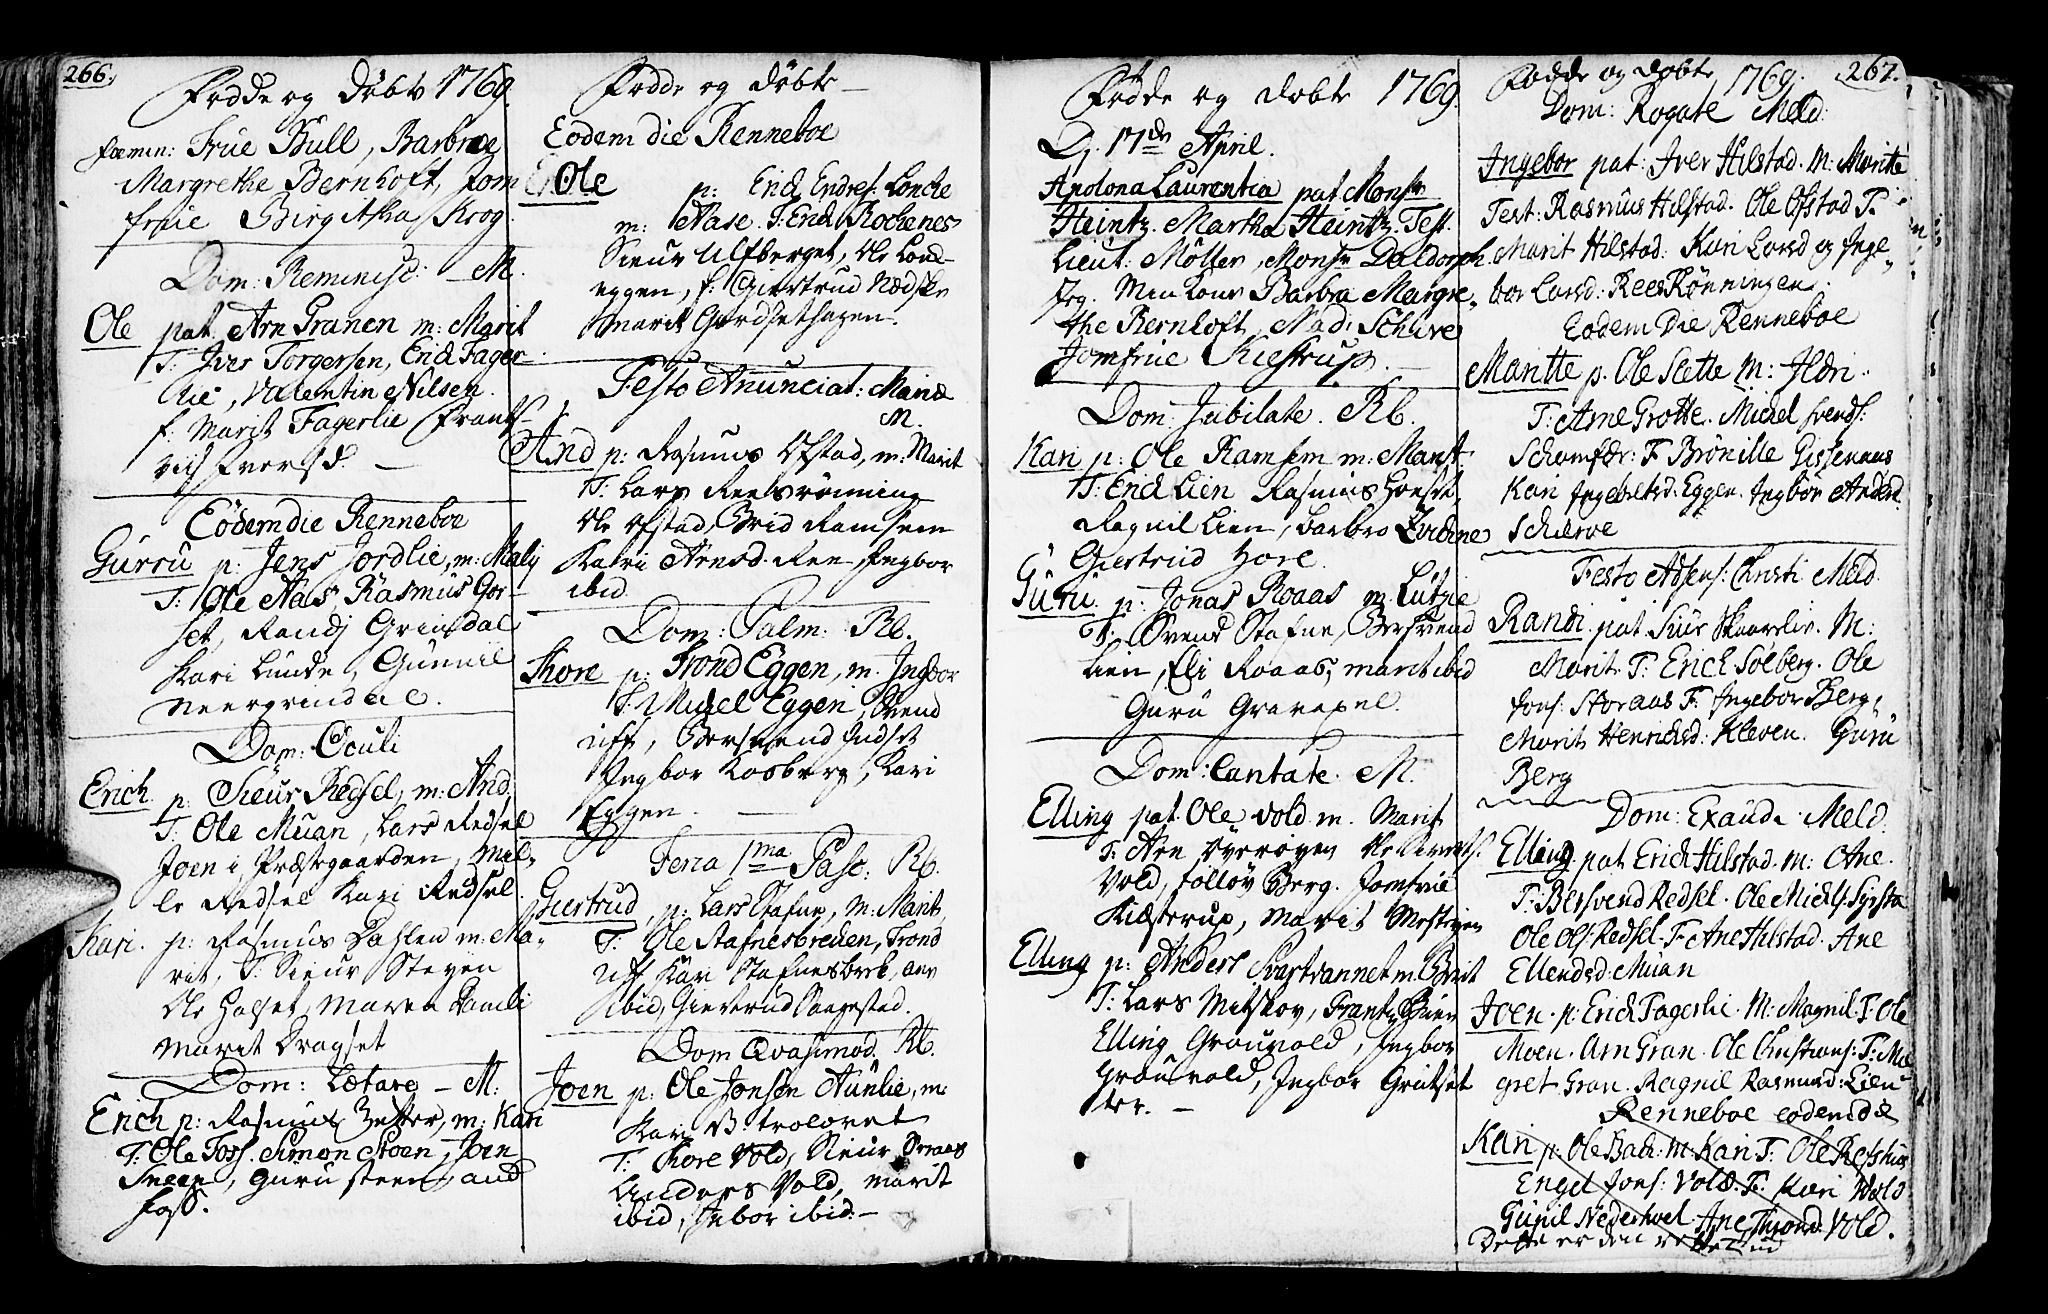 266.
Fødde og Døbte 1769.
foemin: Frue Bull, Barbra
Margrethe Bernhoft, Jom
frue Birgitha Krog.
Dom: Reminisc: M.
Ole pat. Arn Granen m: Marit
T: Iver Torgersen, Erich Fager
lie, Valentin Nilsen
f: Marit Fagerlie
Iversd.
Eodem die Renneboe
Gurru p: Jens Jordlie, m: Mally
T: Ole Aas, Rasmus Gor
set, Randj Grindal
Kari Lunde, Gunnil
Neergrindal.
Dom: Oculi
Erich p: Sieur Redsel, m: And.
T: Ole Muan, Lars Redsel
Joen i Præstegaarden, Mil-
le Redsel Kari Redsel
Kari. p: Rasmus Dahlen m: Ma-
rit, T: Sieur Stegen
Ole Halset, Maren
Marit Dragset
Dom: Lætare - M:
Erich p: Rasmus m: Kari
T: Ole Foss. Simon Stoen, Joen
Sneen, Guru steen, and
foss.
Fødde og Døbte
Eodem die Renneboe
Ole p: Erich Endres: Lonche
m: Aase. T: Erich Rochenes
Sieur Ulfberget, Ole Lon-
eggen, f: Giertrud
Marit Gardsethagen.
Festo Anunciat: Mariæ
M.
And p: Rasmus Ofstad, m: Marit
T: Lars Reelsrønning
Ole Ofstad, Brid Ramsem
Kari Arnsd. Ree, Ingbor
ibid
Dom: Palm: Rb.
Thore p: Trond Eggen, m. Ingbor
T: Michel Eggen, Svend
Uff, Bersvend Indset
Ingbor Kosberg, Kari
Eggen.
Feria 1ma Pasc: Rb.
Giertrud, p: Lars Stafne, m: Marit
T: Ole Stafnesbrecken, Trond
Uff Kari Stafnesbrek, ane
ibid, Giertrud Saugestad.
Dom Qvasimod. Rb.
Joen p: Ole Jonsen Aunlie, m:
Kari B: trolovet
T: Thore Vold, Sieur
Anders Vold, marit
ibid, Inbor ibid.
Fødde og Døbte 1769.
D. 17de April.
Apolona Laurentia pat Monsr
Heintz. Martha Heintz. Test.
Lieut: Møller, Monsr Daldorph.
Barbra Margre
the Bernhoft, Mad: Schive
Jomfrue Kiestrup.
Dom: Jubilate. Rb.
Kari p: Ole Ramsem m: Marit
T: Erich Lien Rasmus Hoset,
Ragnil Lien, Barbro
Giertrud Hore.
Guru. p: Jonas Roaas m. Lutzie
T. Svend Stafne, Bersvend
Lien, Eli Roaas, marit ibid
Guru Gravaxel.
Dom: Cantate. M.
Elling pat. Ole Vold m. Marit
T: Arn Överöyen Ole
Vold, Folløv Berg. Jomfrue
Kiæsterup, Marit
Elling p: Anders Svartvannet m: Berit
T: Lars Mitskov, Frantz
Elling Grønvold, Ingbor
Grønvold, Ingbor Grøtset
ter.
Fødde og Døbte 1769. 267.
Dom: Rogate Meld:
Ingebor pat: Iver Hilstad. M: Maritte
Test: Rasmus Hilstad. Ole Ofstad T.
Marit Hilstad: Kari Larsd og Inge-
bor Larsd: Rees Rønningen.
Eodem Die Renneboe
Maritte p. Ole Slette M: Ildri.
T: Arne Grotte. Michel svends:
F Brønille Gissenaas
Kari Ingebretsd. Eggen. Ingbor Andersd.
Schierve
Festo Adsens: Christi Meld.
Randi. pat Siur Skaarlie. M:
Marit. T: Erich Solberg. Ole
Jons: Storaas F. Ingebor Berg,
Marit Henrichsd: Kleven. Guru
Berg
Dom: Exaudi Meld:
Elling pat Erich Hilstad. m: Ane.
T: Bersvend Redsel. Ole Michels: Syrsta
Ole Ols: Redsel. F. Ane Hilstad. Ane
Ellendsd: Muan
Joen. p: Erich Fagerlie. M: Magnil. T: Ole
Moen. Arn Gran. Ole Christians: F: Ma
gret Gran. Ragnil Rasmusd: Lien
Renneboe eodem die
Kari p: Ole Bach. m: Kari T: Ole Refshus
Engel Jons: Vold. F. Kari Vold
Gunil Nederhoel. Ane Thronds: Vold.
Dette er den